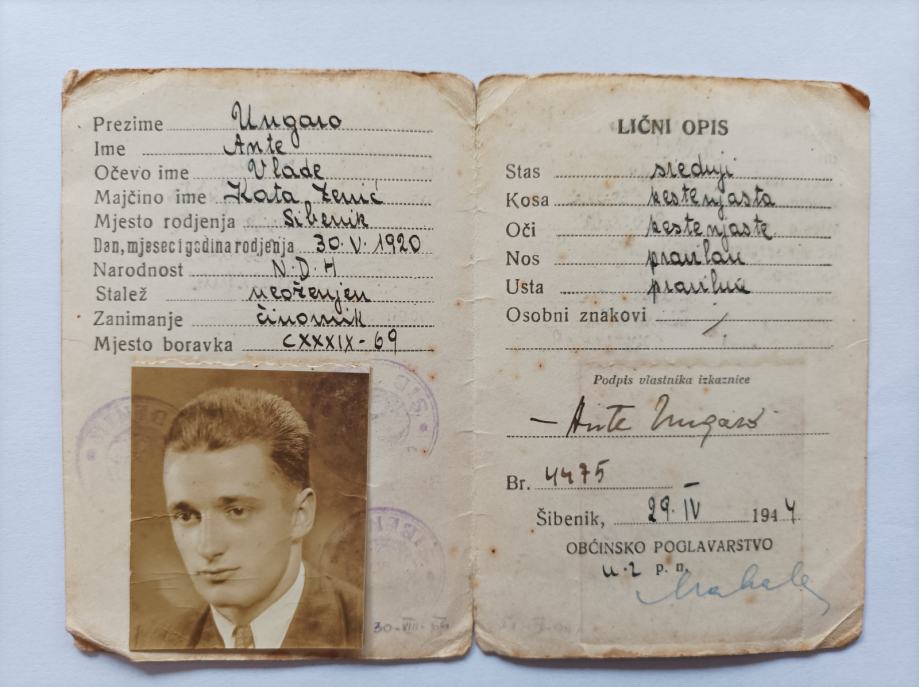 Prezime Ungaro
Ime Ante
Očevo ime Vlade
Majčino ime Kata Zenić
Mjesto rodjenja Šibenik
Dan, mjesec i godina rodjenja 30.V.1920
Narodnost N.D.H
Stalež neoženjen
Zanimanje činovnik
Mjesto boravka CXXXIX-69
LIČNI OPIS
Stas srednji
Kosa kestenjasta
Oči kestenjaste
Nos pravilan
Usta pravilna
Osobni znakovi /
Podpis vlastnika izkaznice
- Ante Ungaro
Br. 4475
Šibenik, 29. IV 1944
OBĆINSKO POGLAVARSTVO
u.z p. n.